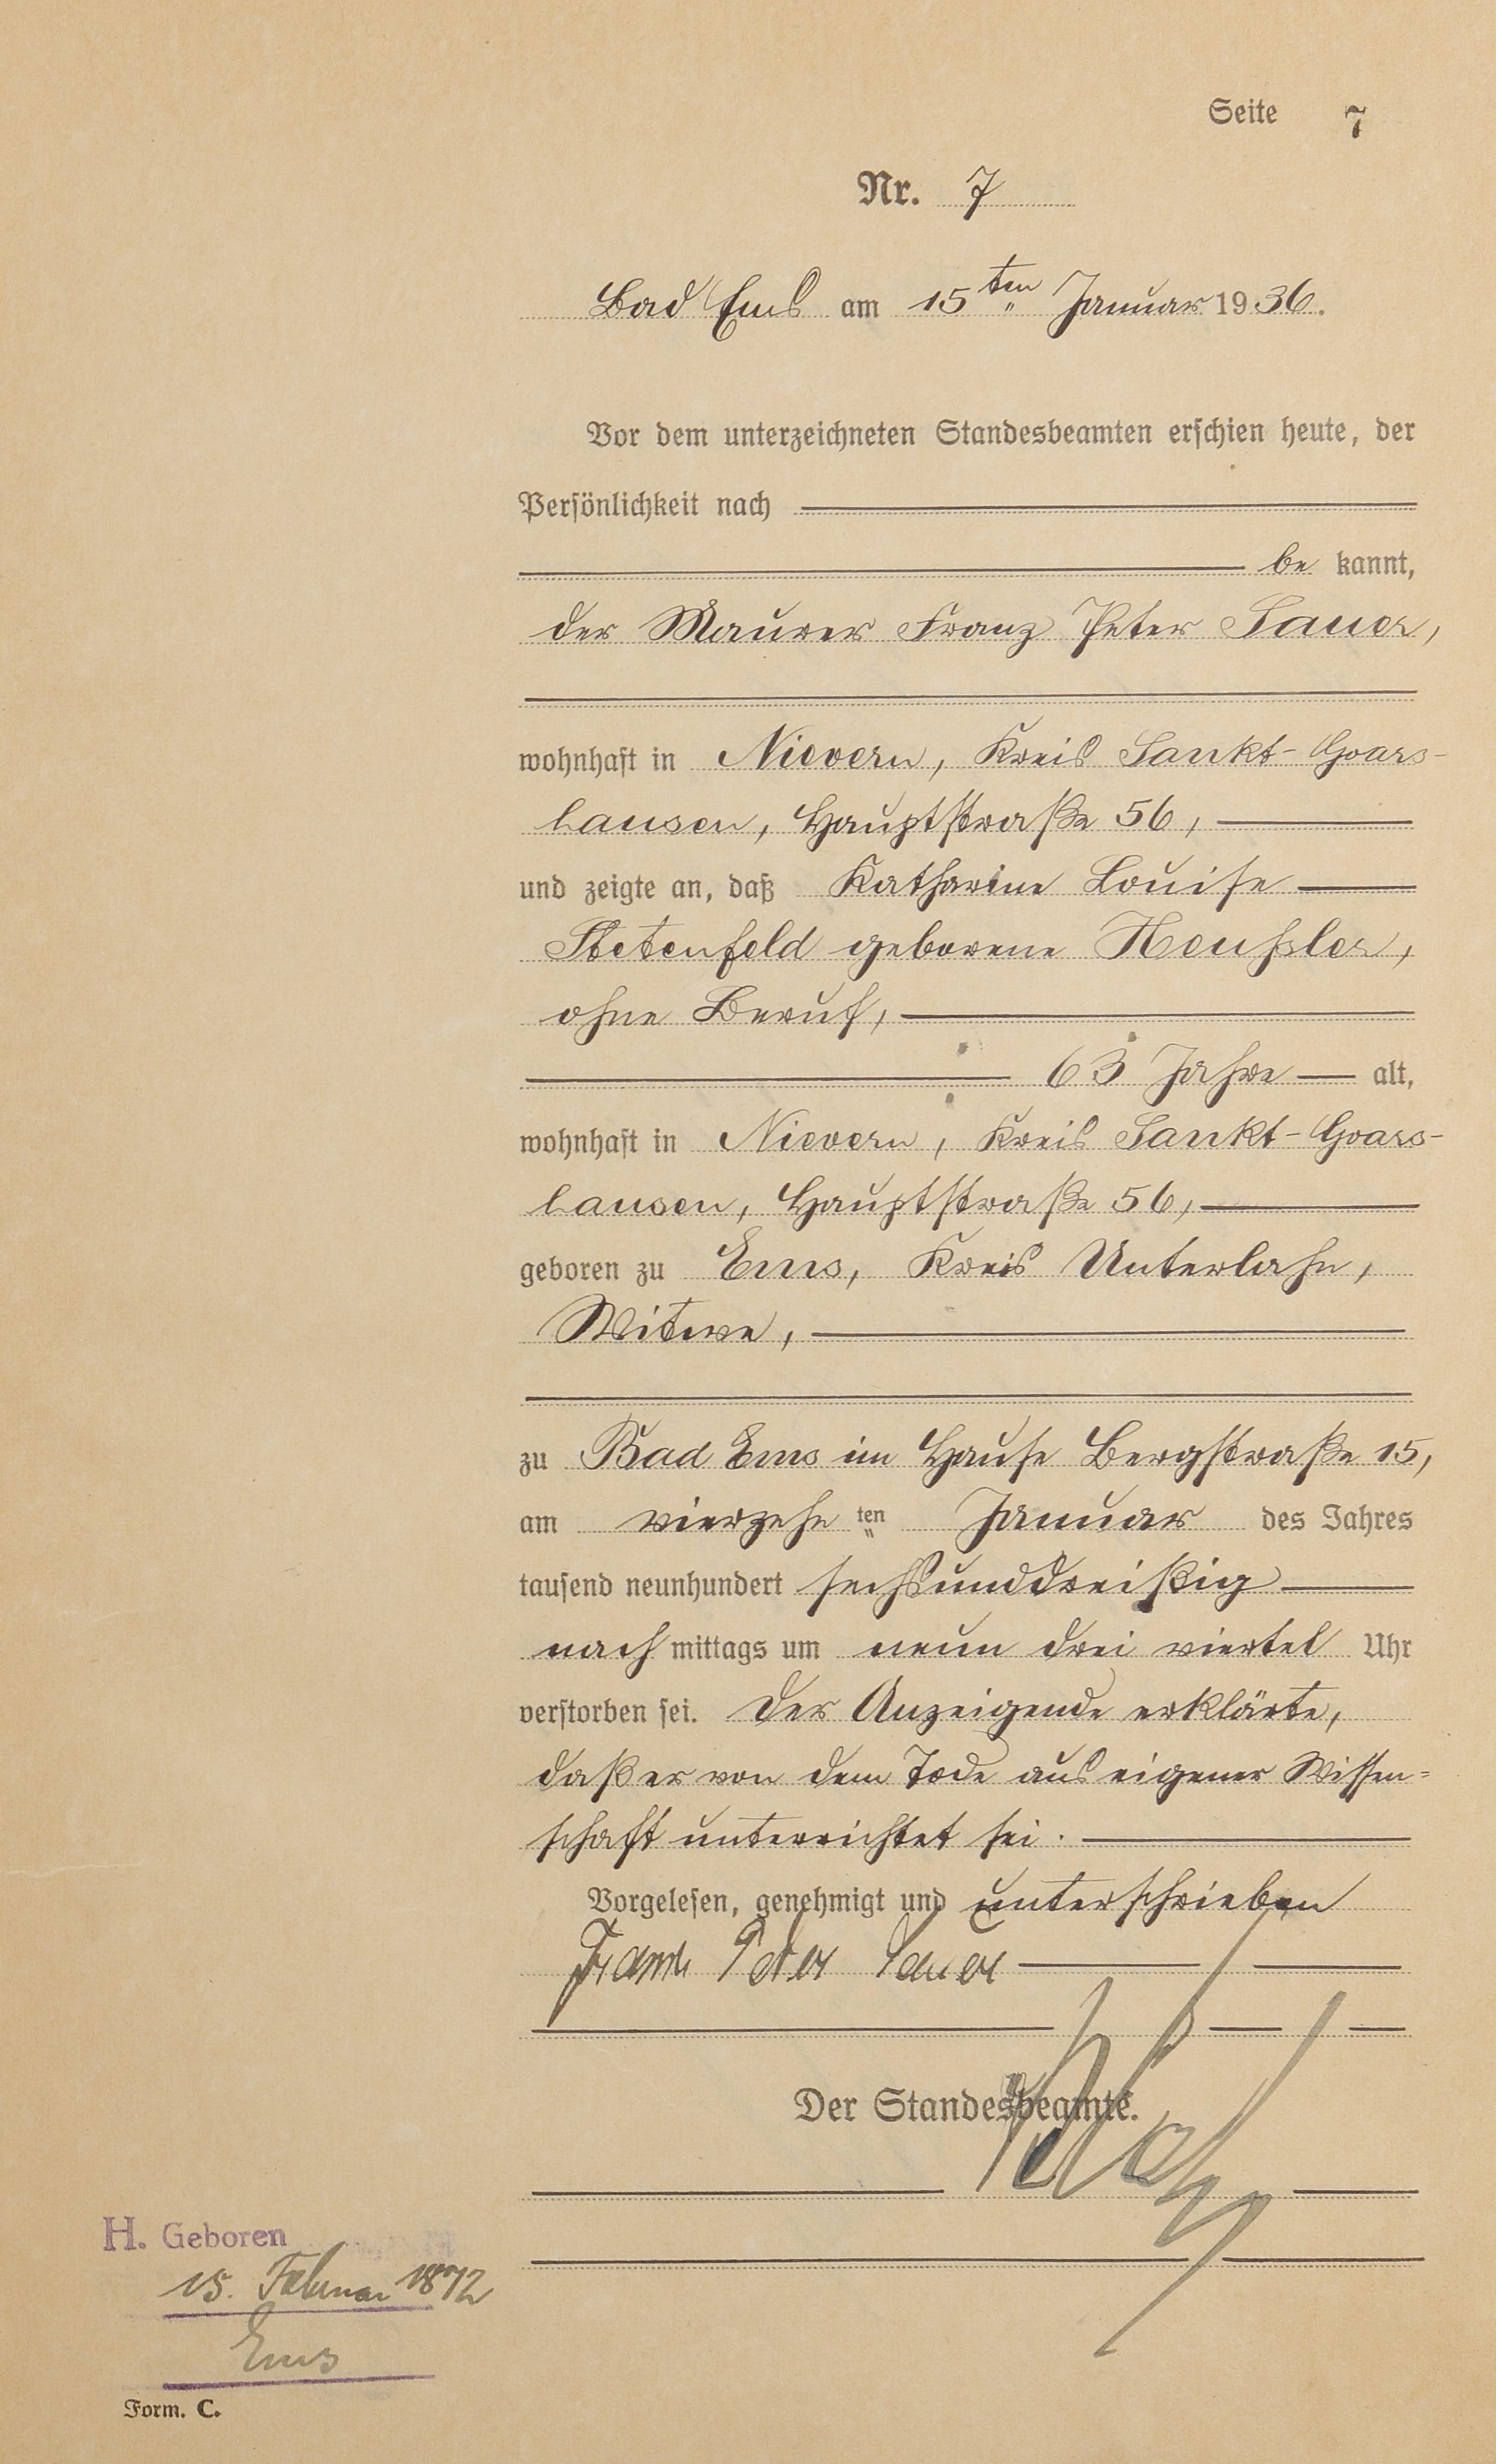 Seite 7
Nr. 7
Bad Ems am 15ten Januar 1936.
Vor dem unterzeichneten Standesbeamten erschien heute, der
Persönlichkeit nach
be kannt,
der Maurer Franz Peter Sauer,
wohnhaft in Nievern, Kreis Sankt-Goars-
hausen, Hauptstraße 56,
und zeigte an, daß Katharine Louise
Stetenfeld geborene Heußler,
ohne Beruf,
63 Jahre alt,
wohnhaft in Nievern, Kreis Sankt-Goars-
hausen, Hauptstraße 56,
geboren zu Ems, Kreis Unterlahn,
Witwe,
zu Bad Ems im Hause Bergstraße 15,
am vierzehn ten Januar des Jahres
tausend neunhundert sechsunddreißig
nach mittags um neun drei viertel Uhr
verstorben sei. Der Anzeigende erklärte,
daß er von dem Tode aus eigener Wissen=
schaft unterrichtet sei.
Vorgelesen, genehmigt und unterschrieben
Franz Peter Sauer
Der Standesbeamte.
H. Geboren
15. Februar 1872
Ems
Form. C.